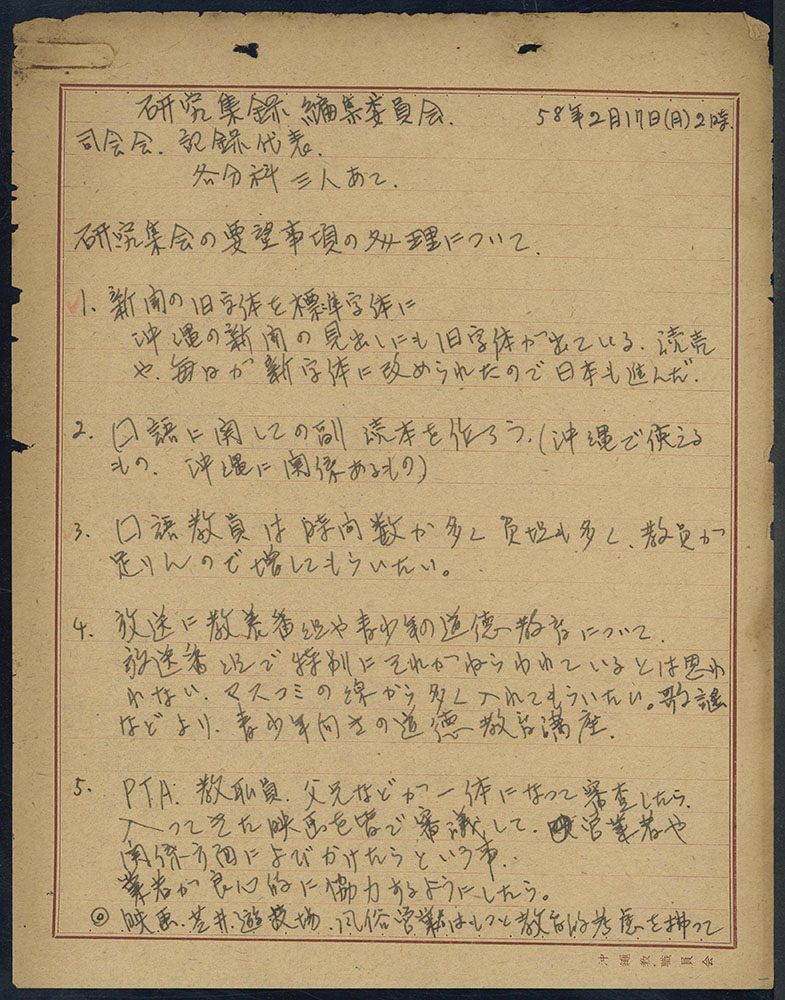 研究集録 編集委員会. 58年2月17日(月)2時.
司会会. 記録代表.
各分科 三人あて.
研究集会の要望事項の処理について.
1. 新聞の旧字体を標準字体に
沖縄の新聞の見出しにも旧字体が出ている. 読売
や. 毎日が新字体に改められたので日本も進んだ.
2. 口語に関しての副読本を作ろう. (沖縄で使える
もの. 沖縄に関係あるもの)
3. 口語教員は時間数が多く負担も多く、教員が
足りんので増してもらいたい。
4. 放送に教養番組や青少年の道徳教育について.
放送番組で特別にそれがねらわれているとは思わ
れない. マスコミの線から多く入れてもらいたい。歌謡
などより. 青少年向きの道徳教育講座.
5. PTA. 教職員. 父兄などが一体になって審査したら.
入ってきた映画を皆で審議して. 営業者や
関係方面によびかけたらという事.
業者が良心的に協力するようにしたら。
◎ 映画. 遊技場. 風俗営業はもっと教育的考慮を拂って
沖縄教職員会